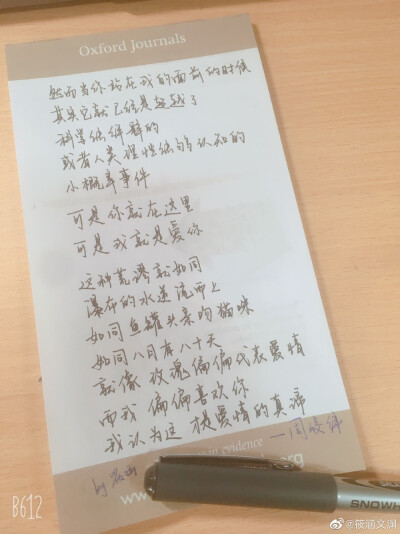 Oxford Journals
然而当你站在我的面前的时候
其实它就已经是超越了
科学能解释的
或者人类理性能够认知的
小概率事件
可是你就在这里
可是我就是爱你
这种荒谬就如同
瀑布的水逆流而上
如同鱼罐头亲吻猫咪
如同八月有八十天
就像玫瑰偏偏代表爱情
而我偏偏喜欢你
我认为这才是爱情的真谛
in evidence
by
www
.org
SNOWH
B612
@筱涵文渊